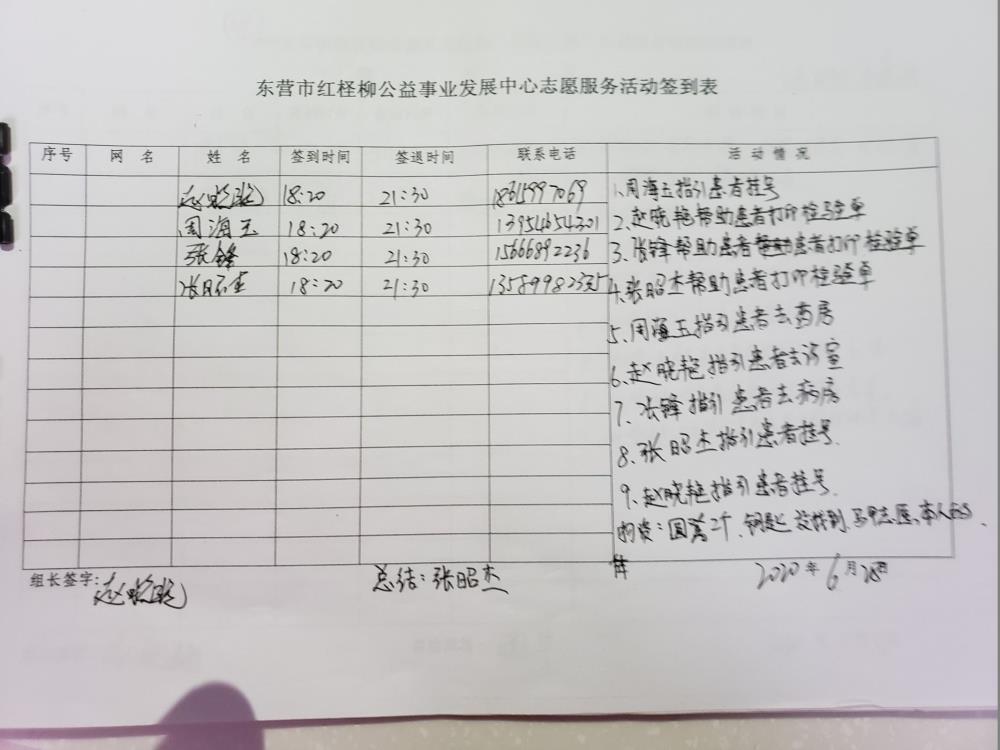 东营市红柽柳公益事业发展中心志愿服务活动签到表
序号 网 名 姓 名 签到时间 签退时间 联系电话 活 动 情 况
赵晓艳 18:20 21:30 18615997069
周海玉 18:20 21:30 13954654301
张锋 18:20 21:30 15666892236
张昭杰 18:20 21:30
1.周海玉指引患者挂号
2.赵晓艳帮助患者打印检验单
3.张锋帮助患者患者打印检验单
4.张昭杰帮助患者打印检验单
5.周海玉指引患者去药房
6.赵晓艳指引患者去诊室
7.张锋指引患者去病房
8.张昭杰指引患者挂号.
9.赵晓艳指引患者挂号.
物资:国 2个.钥匙没找到.
组长签字:赵晓艳
总结:张昭杰
2020年6月28日